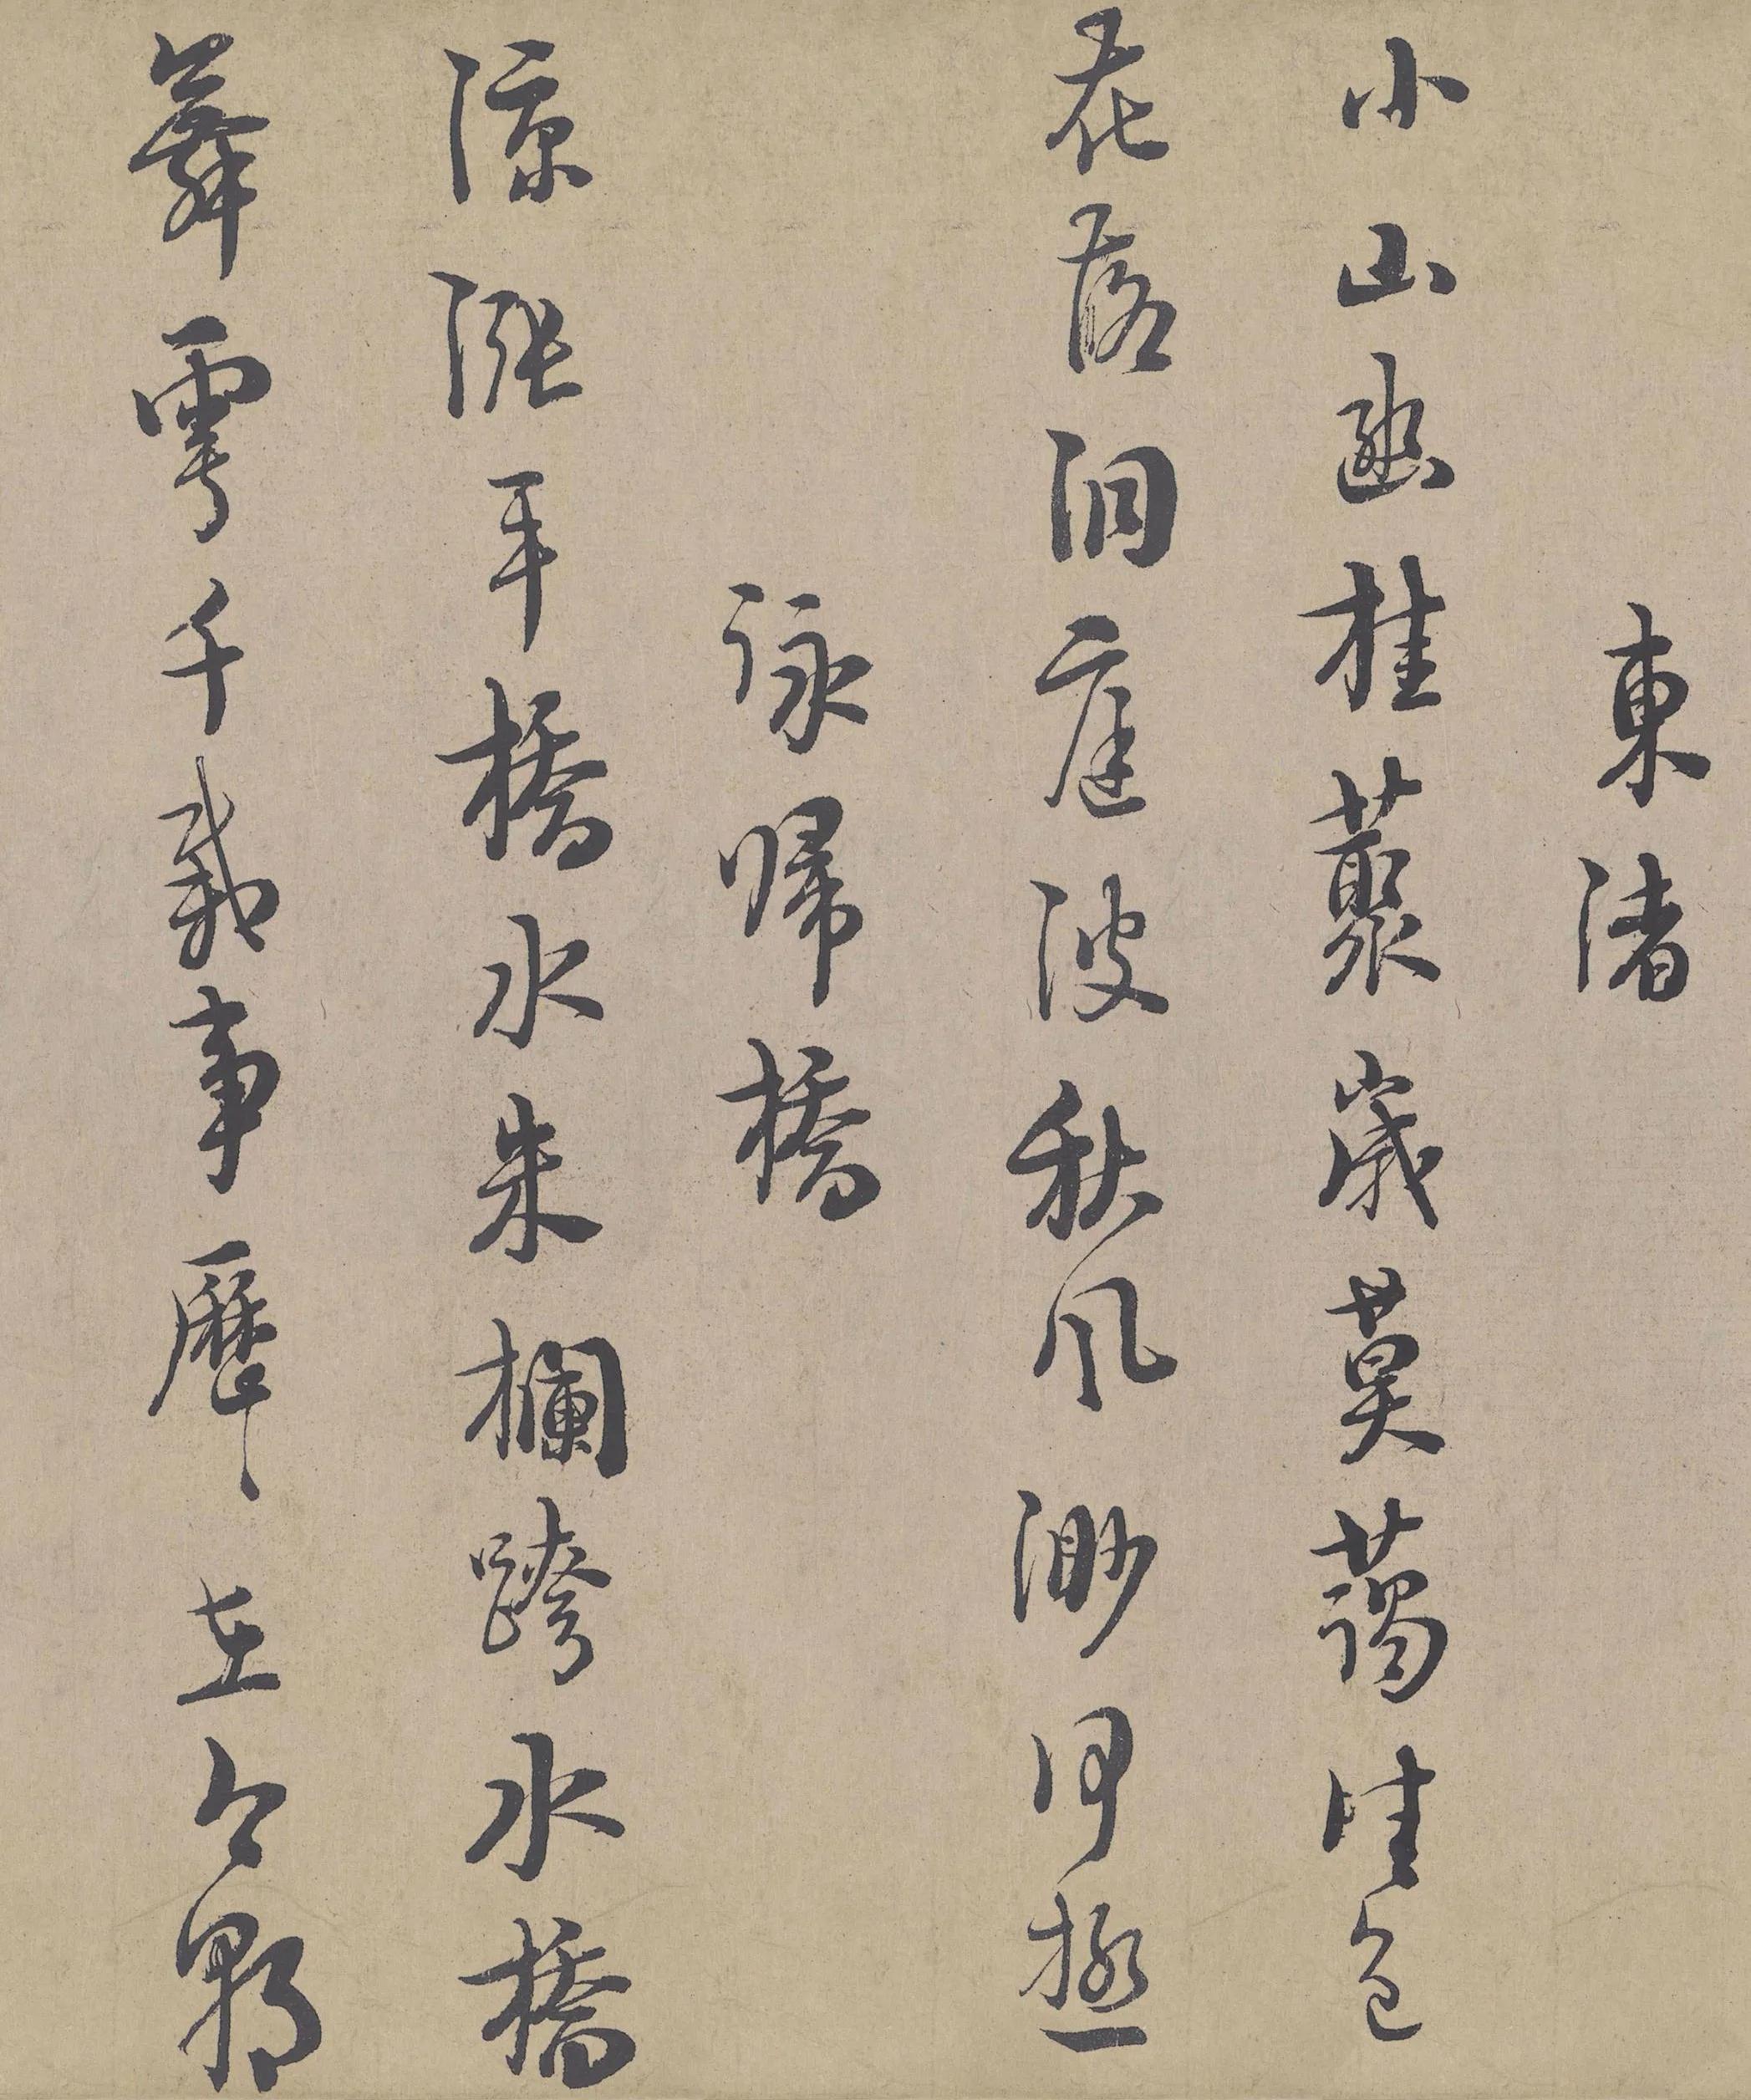 東渚
小山幽桂藂歲莫藹佳色
花落洞庭波秋風渺何極
詠歸橋
漲平橋水朱欄跨水橋
舞雩千載事歷〻在今朝